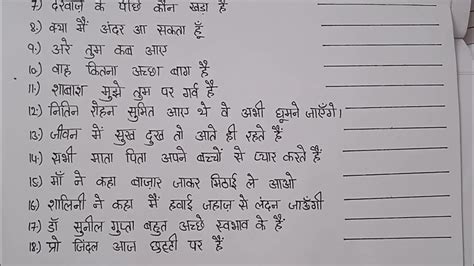 7.) दरवाजे के पीछे कौन खड़ा है
8.) क्या मैं अंदर आ सकता हूँ
9.) अरे तुम कब आए
10.) वाह कितना अच्छा बाग हैं
11.) शाबाश मुझे तुम पर गर्व हैं
12.) नितिन रोहन सुमित आए थे वे अभी घूमने जाएँगे।
13.) जीवन में सुख दुख तो आते ही रहते हैं
14.) सभी माता पिता अपने बच्चों से प्यार करते हैं
15.) माँ ने कहा बाज़ार जाकर मिठाई ले आओ
16.) शालिनी ने कहा मैं हवाई जहाज़ से लंदन जाऊँगी
17.) डॉ सुनील गुप्ता बहुत अच्छे स्वभाव के हैं
18.) प्रो जिंदल आज छुट्टी पर हैं